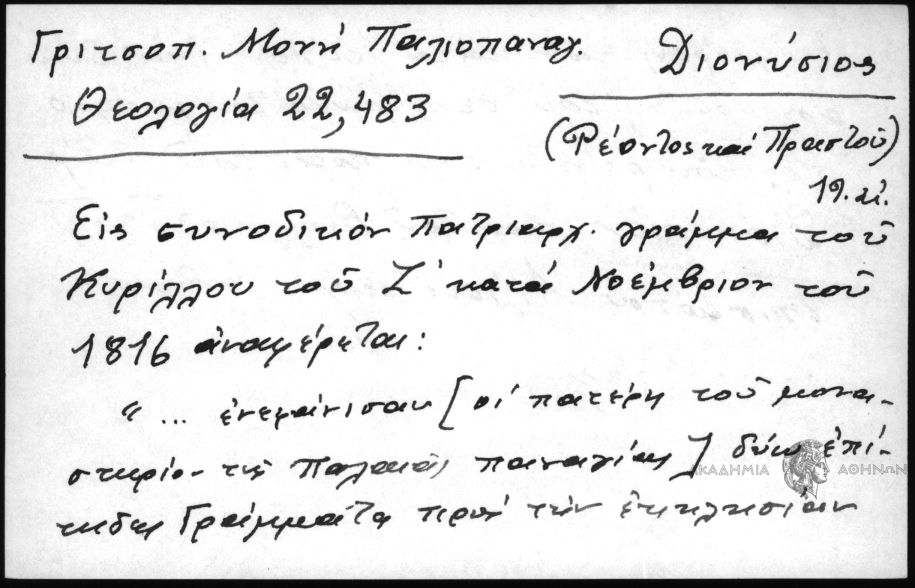 Γριτσοπ. Μονή Παλιοπαναγ.
Θεολογία 22,483
Διονύσιος
(Ρέοντος καί Πραστοῦ)
19. αἰ.
Εἰς συνοδικόν πατριαρχ. γράμμα τοῦ
Κυρίλλου τοῦ Ζ΄ κατά Νοέμβριον τοῦ
1816 ἀναφέρεται:
"... ἐνεφάνισαν [οἱ πατέρες τοῦ μονα-
στηρίο- τῆς Παλαιᾶς παναγίας] δύω ἐπί-
σημα Γράμματα πρός τήν ἐκκλησίαν
ΑΚΑΔΗΜΙΑ ΑΘΗΝΩΝ